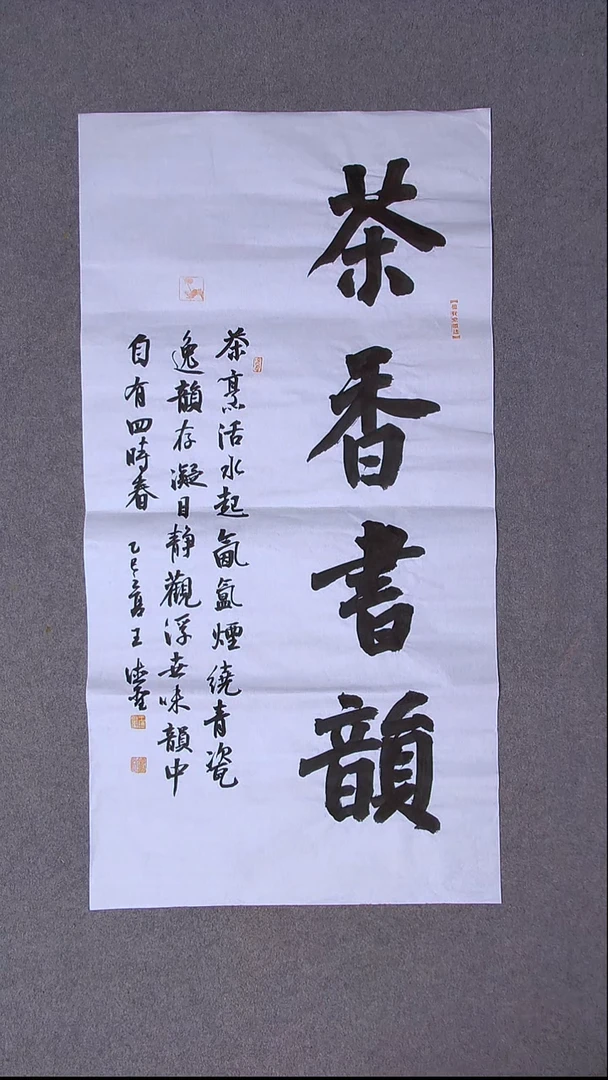 茶香書韻
茶烹活水起氤氳煙繞青瓷
逸韻存凝目靜觀浮世味韻中
自有四時春 乙巳 王